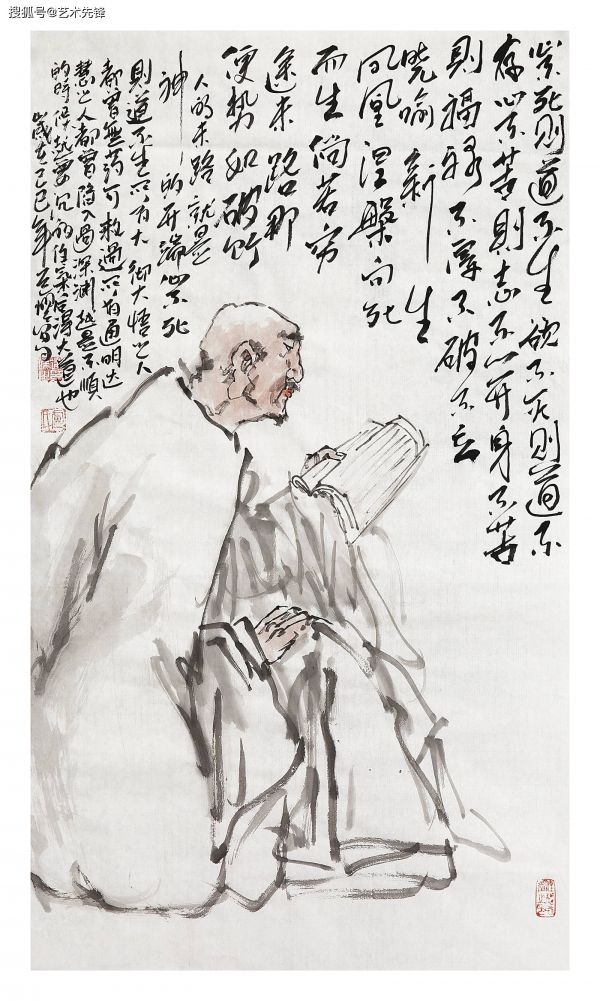 搜狐号@艺术先锋
死则道不生欲不死则道不
存心不苦则志不开身不苦
则福禄不厚不破不立
晓喻新生
凤凰涅槃向死
而生倘若穷
途末路那
便势如破竹
人的末路就是
神的开端心不死
则道不生所有大彻大悟之人
都曾無药可救过所有通明达
慧之人都曾陷入过深渊越是不順
的時候越要沉的住氣后得大道也
岁在乙巳年